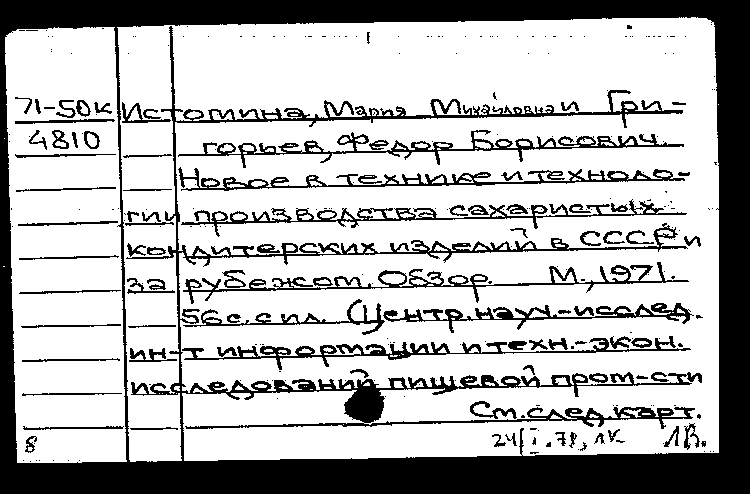 71-50к Истомина, Мария Михайловна и Гри-
4810 горьев, Федор Борисович.
Новое в технике и техноло-
гии производства сахаристых
кондитерских изделий в СССР и
за рубежом. Обзор. М., 1971.
56 с. с ил. (Центр. науч.-исслед.
ин-т информации и техн.-экон.
исследований пищевой пром-сти
См. след. карт.
8 24/I.78, ЛК ЛВ.